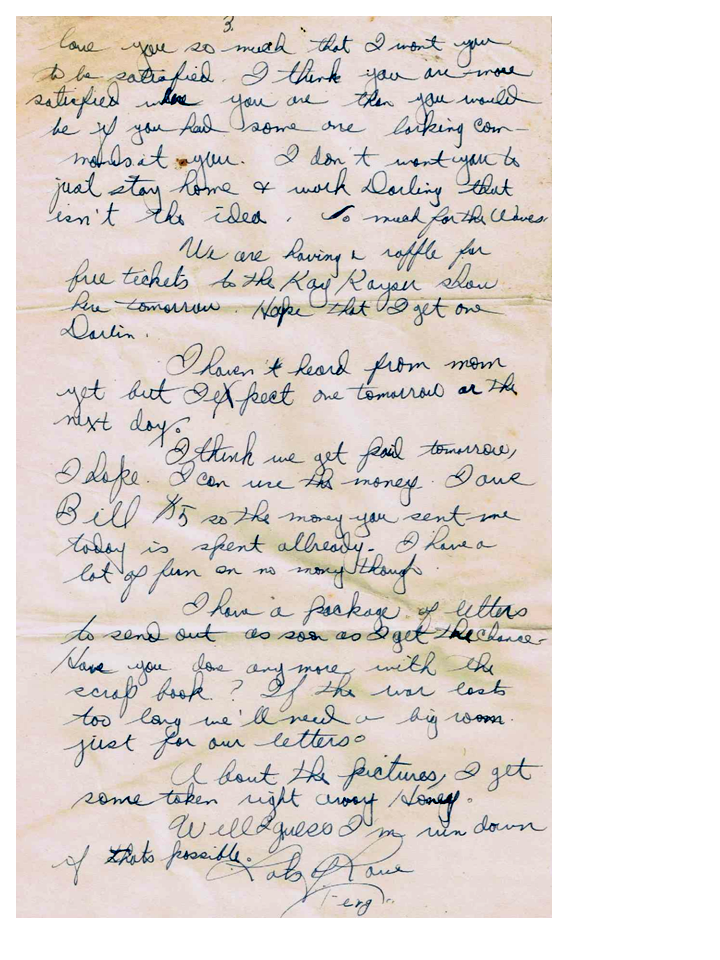 3.
love you so much that I want you
to be satisfied. I think you are more
satisfied where you are than you would
be if you had some one barking com-
mands at you. I don't want you to
just stay home & work Darling that
isn't the idea. So much for the Waves.
We are having a raffle for
free tickets to the Kay Kayser show
here tomorrow. Hope that I get one
Darlin.
I haven't heard from mom
yet but I expect one tomorrow or the
next day.
I think we get paid tomorrow,
I hope. I can use the money. I owe
Bill $5 so the money you sent me
today is spent allready. I have a
lot of fun on no money though.
I have a package of letters
to send out as soon as I get the chance.
Have you done anymore with the
scrap book? If the war lasts
too long we'll need a big room
just for our letters.
About the pictures, I get
some taken right away Honey.
Well I guess I'm run down
if thats possible.
Lots of Love